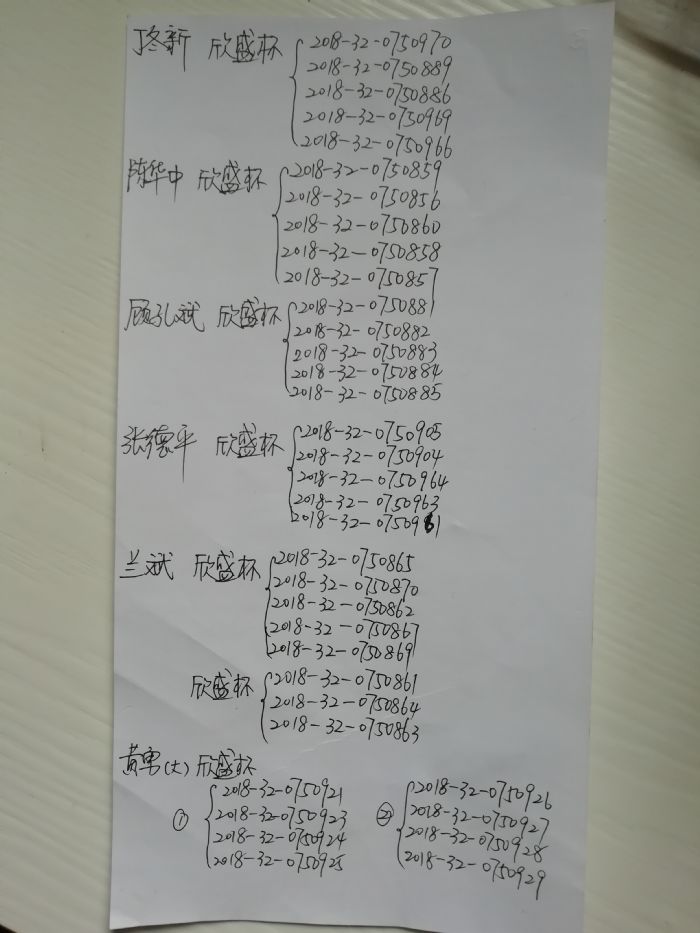 丁冬新 欣盛杯 2018-32-0750970
2018-32-0750889
2018-32-0750886
2018-32-0750969
2018-32-0750966
陈华中 欣盛杯 2018-32-0750859
2018-32-0750856
2018-32-0750860
2018-32-0750858
2018-32-0750857
顾孔斌 欣盛杯 2018-32-0750881
2018-32-0750882
2018-32-0750883
2018-32-0750884
2018-32-0750885
张德平 欣盛杯 2018-32-0750905
2018-32-0750904
2018-32-0750964
2018-32-0750963
2018-32-0750961
兰斌 欣盛杯 2018-32-0750865
2018-32-0750870
2018-32-0750862
2018-32-0750867
2018-32-0750869
欣盛杯 2018-32-0750861
2018-32-0750864
2018-32-0750863
黄勇(大) 欣盛杯
① 2018-32-0750921
2018-32-0750923
2018-32-0750924
2018-32-0750925
② 2018-32-0750926
2018-32-0750927
2018-32-0750928
2018-32-0750929